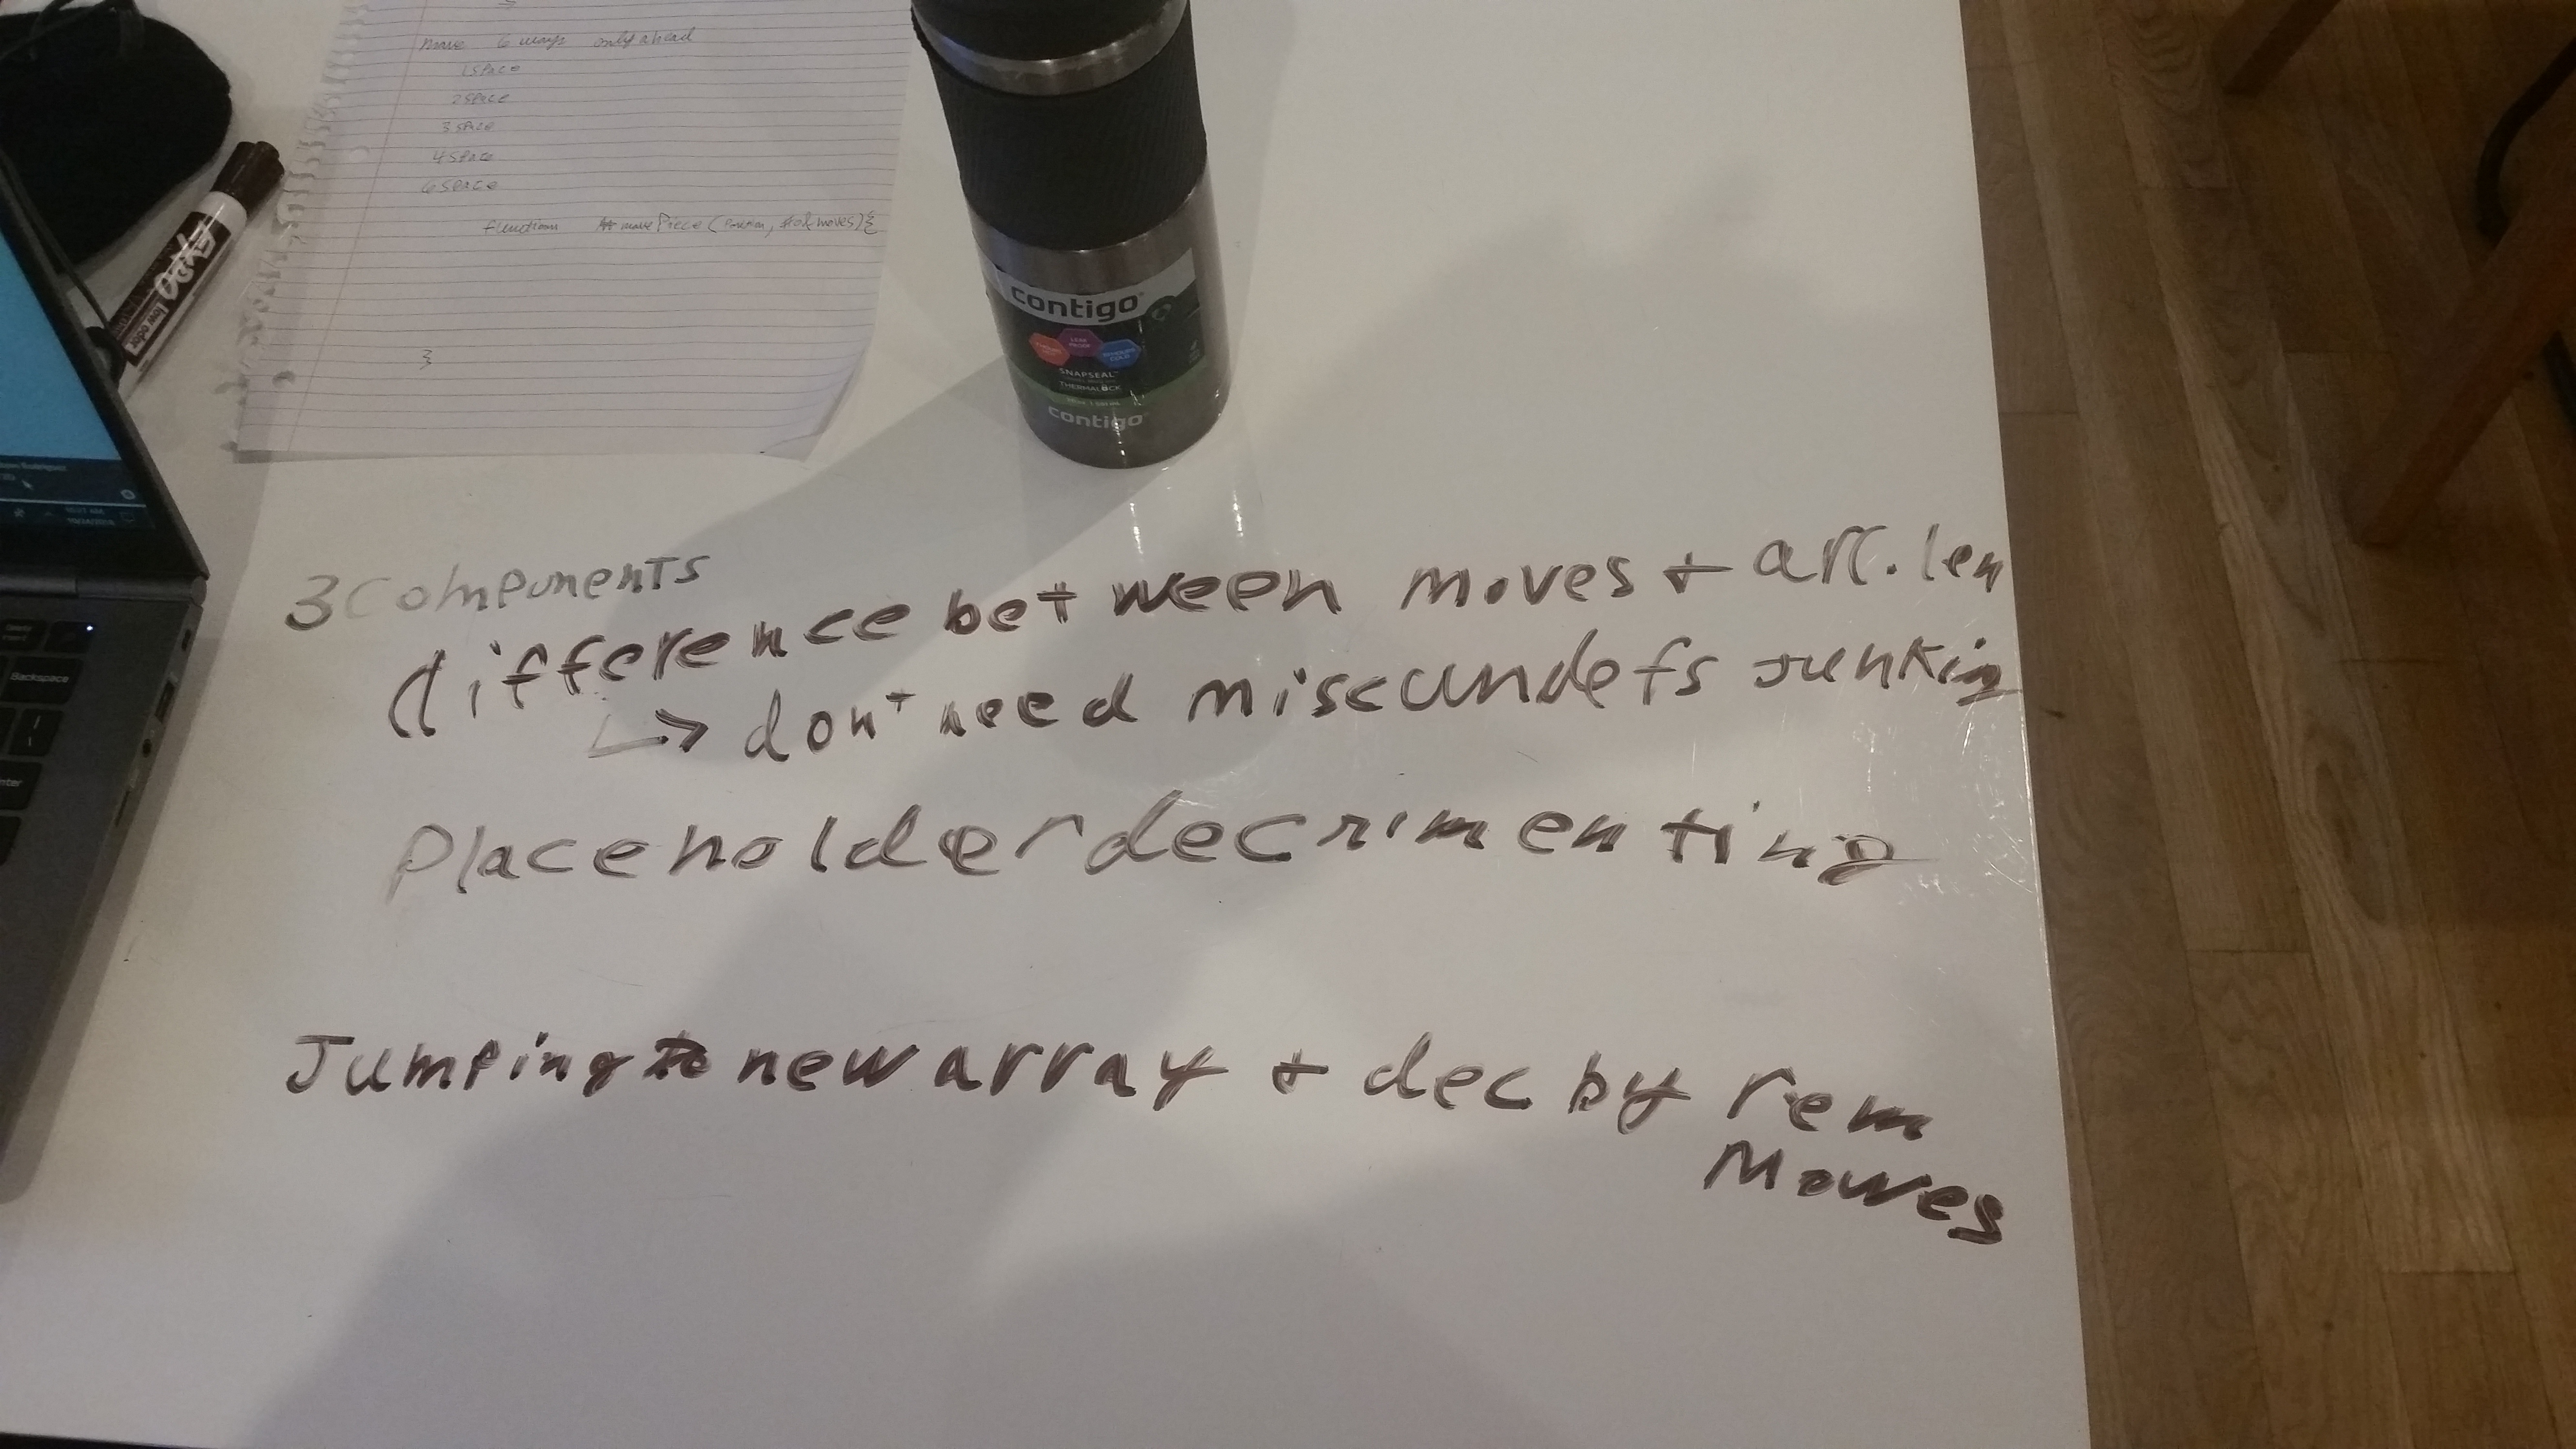 move 6 ways only ahead
1 space
2 space
3 space
4 space
6 space
function movePiece (Position, # of moves) {
}
EXPO
low odor
contigo
LEAK PROOF
SNAPSEAL
THERMALOCK
contigo
Backspace
3 Components
difference between moves + arr.len
↳ don't need misc undefs junking
Placeholder decrimenting
Jumping to new array + dec by rem
Moves